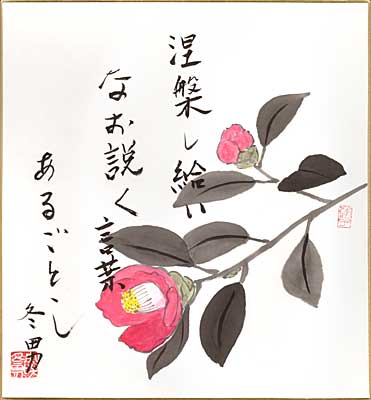 涅槃し給い
なお説く言葉
あるごとし
冬男